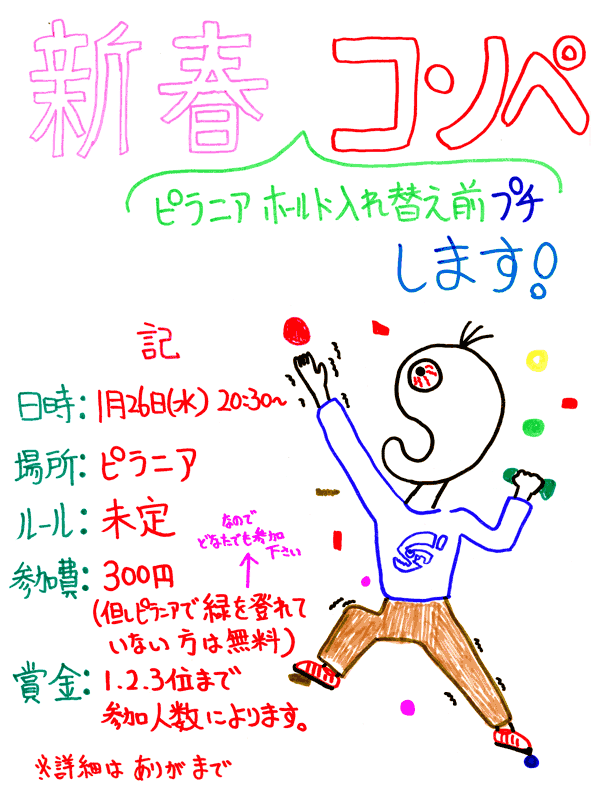 新春 コンペ
ピラニア ホールド入れ替え前 プチ
します!
記
日時: 1月26日(水) 20:30~
場所: ピラニア
ルール: 未定
なので
どなたでも参加
下さい
参加費: 300円
(但しピラニアで緑を登れて
いない方は無料)
賞金: 1.2.3位まで
参加人数によります。
※詳細は ありがまで